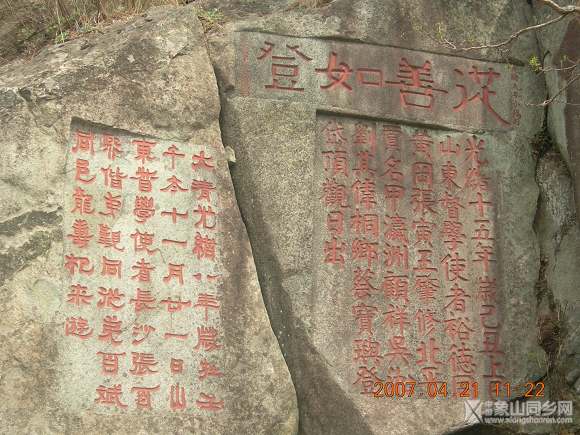 從善如登
光緒十五年歲己丑上
山東督學使者裕德
黃岡張寅王肇修北平
賈名甲瀛洲顧祥吳江
劉其偉桐鄉蔡寶璵登
岱頂觀日出
大清光緒八年歲在壬
午冬十一月廿一日山
東督學使者長沙張百
熙偕弟觀同從弟百斌
同邑龍壽杞來游
2007.04.21 11:22
象山同乡网